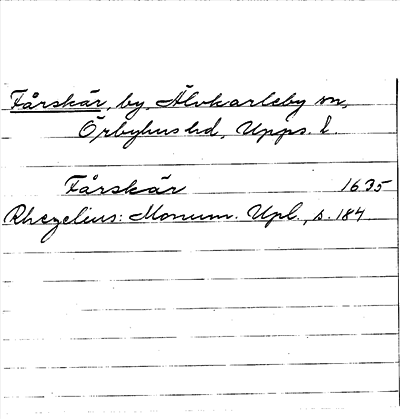 Fårskär, by, Älvkarleby sn,
Örbyhus hd, Upps. l.
Fårskär 1635
Rhezelius: Monum. Upl., s. 184